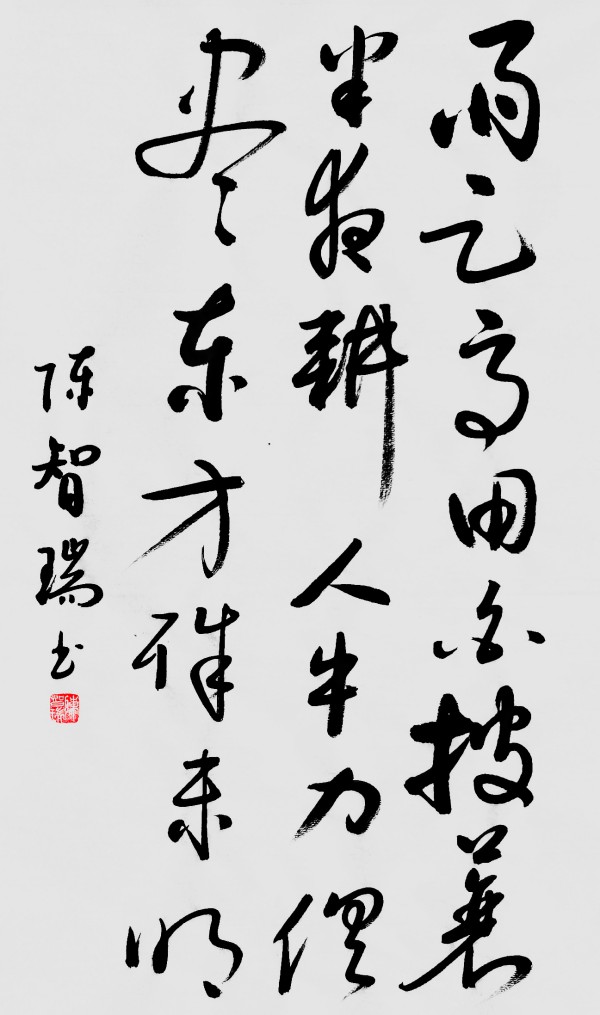 雨足高田白披蓑
半夜耕人牛力俱
尽东方殊未明
陈智瑞书